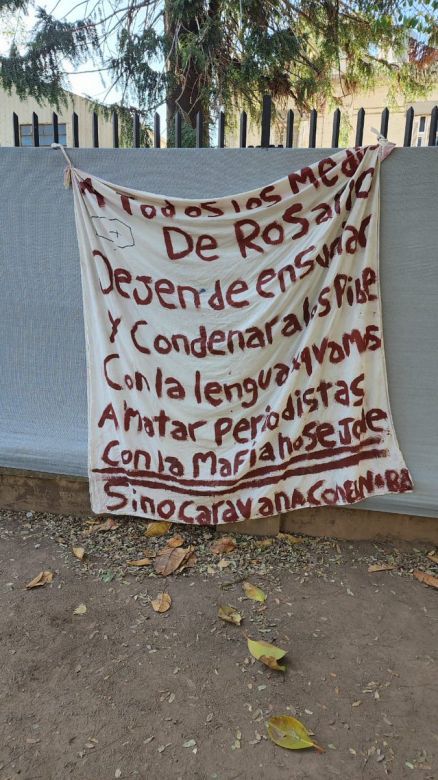 A Todos los Medi
De Rosario
Dejen de ensuciar
y condenar a los Pibe
Con la lengua xq vamos
A matar periodistas
Con la Mafia no se jode
Sino caravana